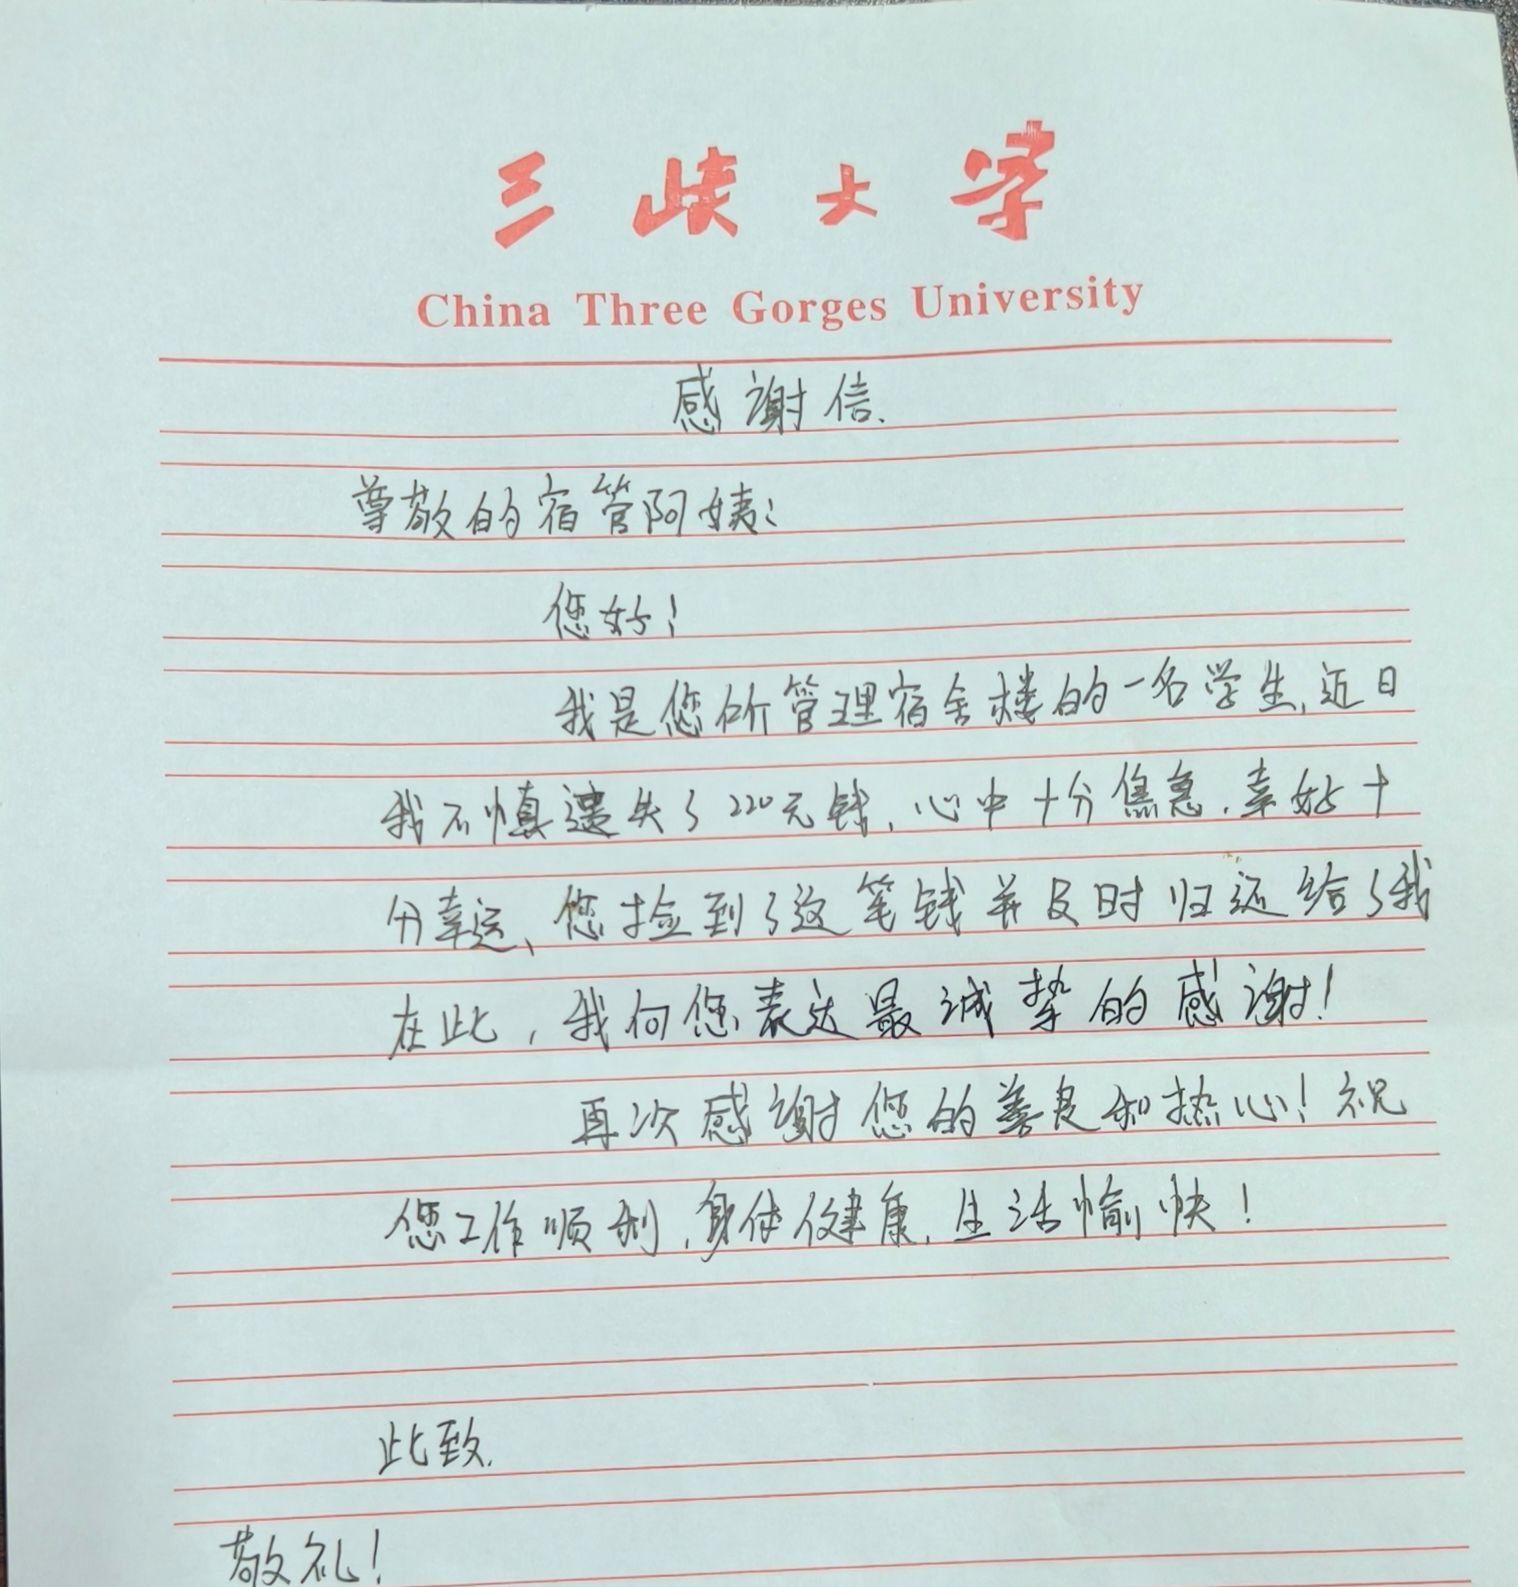 三峡大学
China Three Gorges University
感谢信.
尊敬的宿管阿姨:
您好!
我是您所管理宿舍楼的一名学生,近日
我不慎遗失了220元钱,心中十分焦急.幸好十
分幸运、您捡到了这笔钱并及时归还给了我
在此,我向您表达最诚挚的感谢!
再次感谢您的善良和热心!祝
您工作顺利,身体健康,生活愉快!
此致.
敬礼!